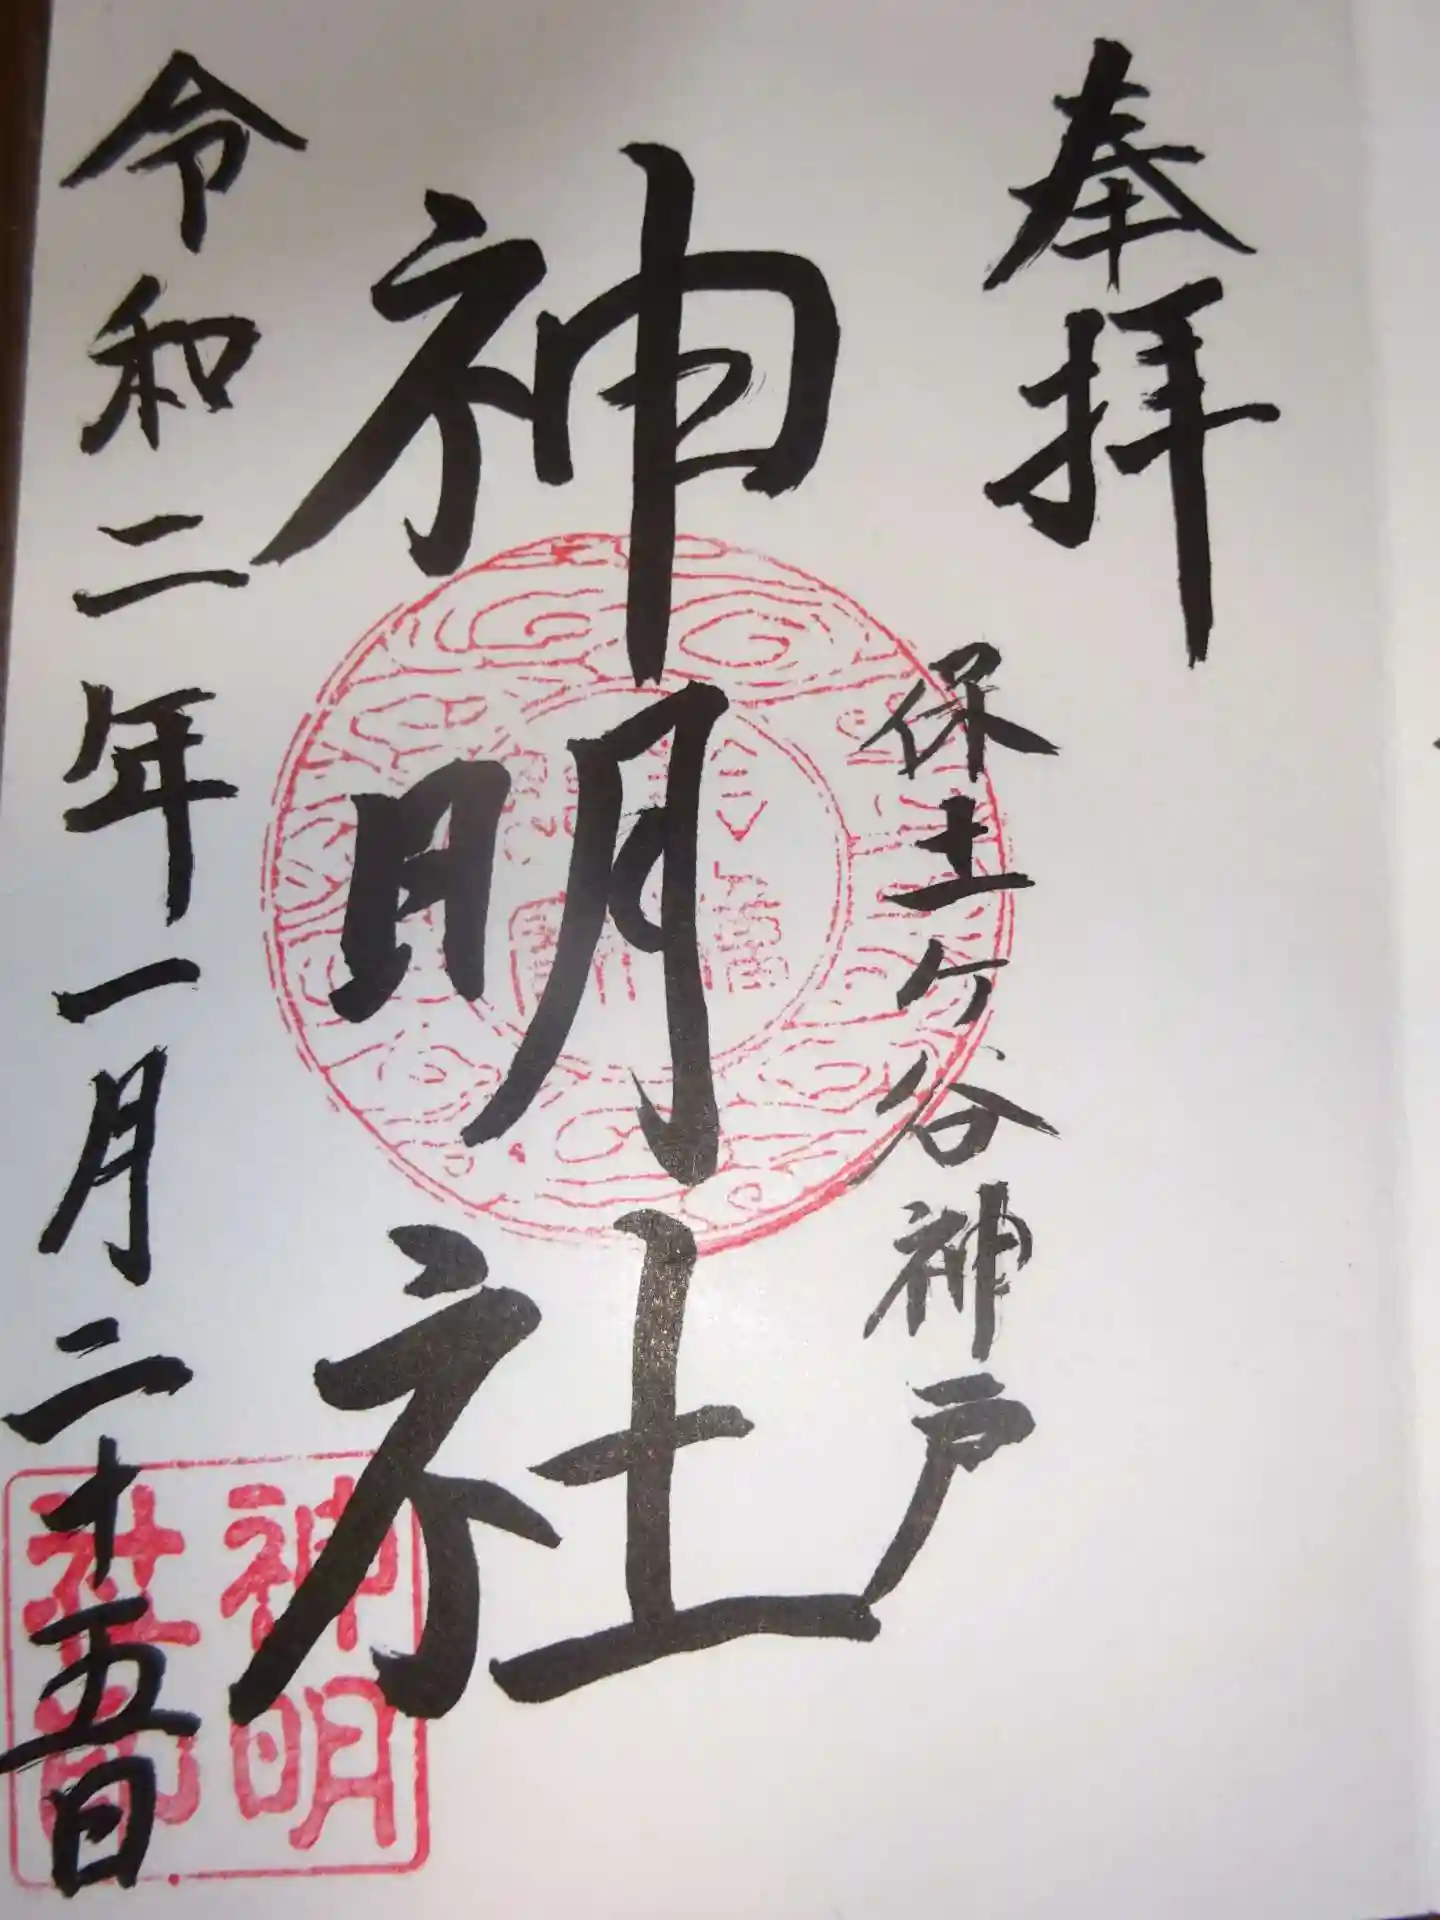 奉拝
保土ケ谷神戸
神明社
令和二年一月二十五日
神明